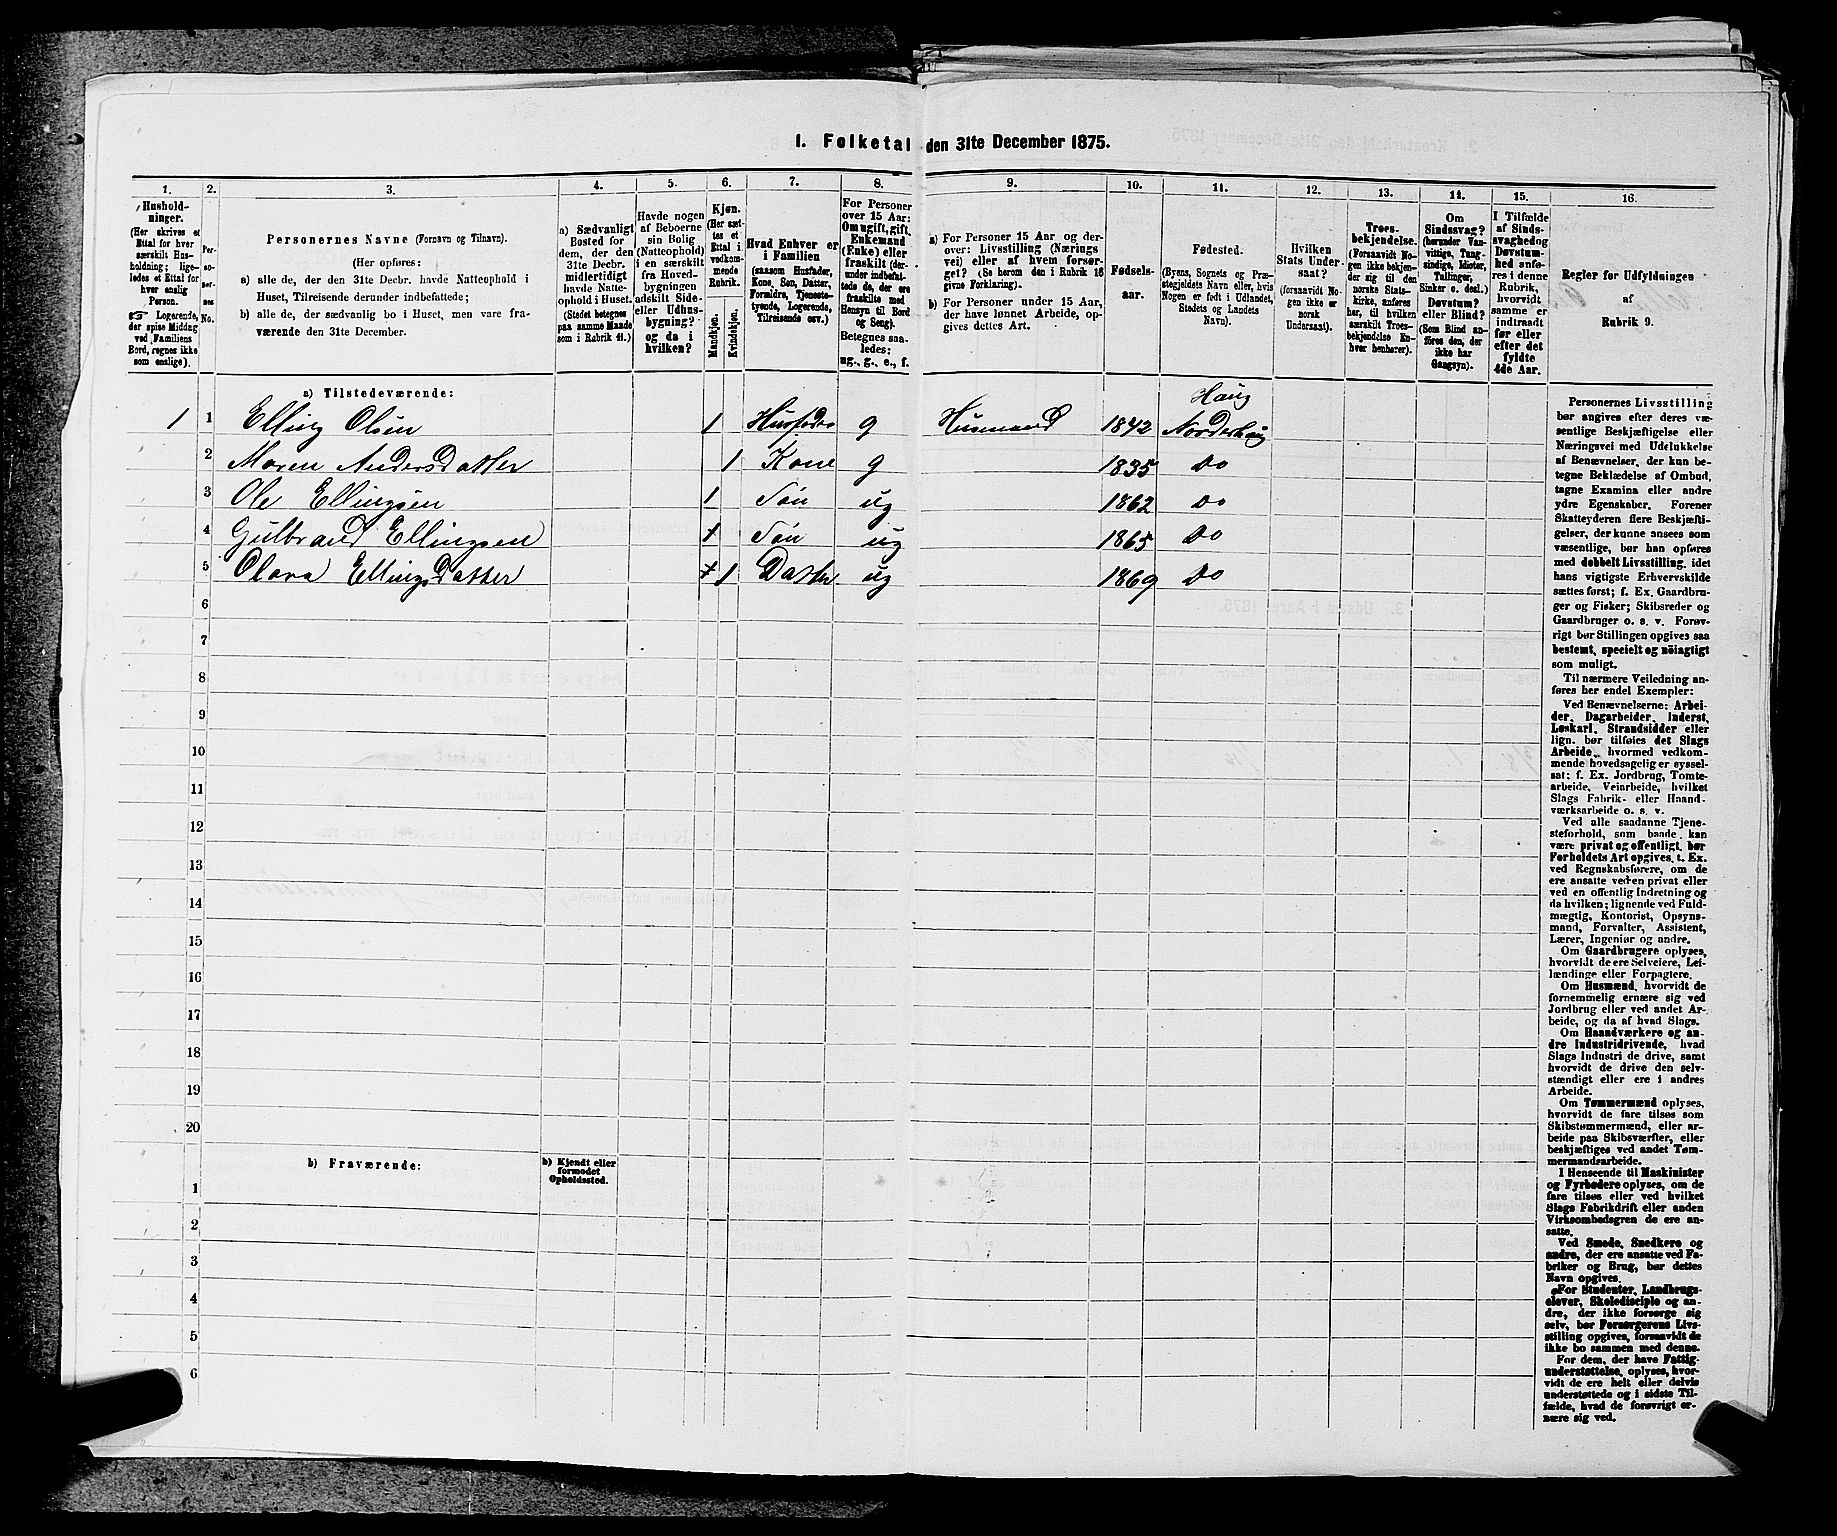 1. Folketal den 31te December 1875.
1. 2. 3. 4. 5. 6. 7. 8. 9. 10. 11. 12. 13. 14. 15. 16.
Hushold-
ninger.
(Her skrives et
Ettal for hver
særskilt Hus-
holdning; lige-
ledes et Ettal for
hver enslig
Person.
☞ Logerende,
der spise Middag
ved Familiens
Bord, regnes ikke
som enslige).
Per-
so-
ner-
nes
No.
Personernes Navne (Fornavn og Tilnavn).
(Her opføres:
a) alle de, der den 31te Decbr. havde Natteophold i
Huset, Tilreisende derunder indbefattede;
b) alle de, der sædvanlig bo i Huset, men vare fra-
værende den 31te December.
a) Sædvanligt
Bosted for
dem, der den
31te Decbr.
midlertidigt
havde Natte-
ophold i Huset.
(Stedet betegnes
paa samme Maade
som i Rubrik 11.)
Havde nogen
af Beboerne
sin Bolig
(Natteophold)
i en særskilt
fra Hoved-
bygningen
adskilt Side-
eller Udhus-
bygning?
og da i
hvilken?
Kjøn.
(Her sæt-
tes et
Ettal i
vedkom-
mende
Rubrik.
Mandkjøn.
Kvindekjøn.
Hvad Enhver er
i Familien
(saasom Husfader,
Kone, Søn, Datter,
Forældre, Tjeneste-
tyende, Logerende,
Tilreisende osv.)
For Personer
over 15 Aar:
Om ugift, gift,
Enkemand
(Enke) eller
fraskilt (der-
under indbefat-
tede de, der ere
fraskilte med
Hensyn til Bord
og Seng).
Betegnes saa-
ledes:
ug., g., e., f.
a) For Personer 15 Aar og der-
over: Livsstilling (Nærings
vei) eller af hvem forsør-
get? (Se herom den i Rubrik 16
givne Forklaring).
b) For Personer under 15 Aar,
der have lønnet Arbeide, op-
gives dettes Art.
Fødsels-
aar.
Fødested.
(Byens, Sognets og Præ-
stegjeldets Navn eller, hvis
Nogen er født i Udlandet,
Stedets og Landets
Navn).
Hvilken
Stats Under-
saat?
(forsaavidt No-
gen ikke er
norsk
Undersaat).
Troes-
bekjendelse.
(Forsaavidt No-
gen ikke bekjen-
der sig til den
norske Stats-
kirke, anføres
her, til hvilken
særskilt Troes-
bekjendelse En-
hver henhører).
Om
Sindssvag?
(herunder Van-
vittige, Tung-
sindige, Idioter,
Tullinger,
Sinker o. desl.)
Døvstum?
eller Blind?
(Som Blind an-
føres den, der
ikke har
Gangsyn).
I Tilfælde
af Sinds-
svaghed og
Døvstum-
hed anfø-
res i denne
Rubrik,
hvorvidt
samme er
indtraadt
før eller
efter det
fyldte
4de Aar.
Regler for Udfyldningen
af
Rubrik 9.
a) Tilstedeværende:
Haug
1 1 Elling Olsen 1 Husfader g Husmand 1842 Norderhaug
2 Maren Andersdatter 1 Kone g 1835 Do
3 Ole Ellingsen 1 Søn ug 1862 Do
4 Gulbrand Ellingsen 1 Søn ug 1865 Do
5 Olava Ellingsdatter 1 Datter ug 1869 Do
6
7
8
9
10
11
12
13
14
15
16
17
18
19
20
b) Fraværende:
b) Kjendt eller
formodet
Opholdssted.
1
2
3
4
5
6
Personernes Livsstilling
bør angives efter deres væ-
sentlige Beskjæftigelse eller
Næringsvei med Udelukkelse
af Benævnelser, der kun be-
tegne Beklædelse af Ombud,
tagne Examina eller andre
ydre Egenskaber. Forener
Skatteyderen flere Beskjæfti-
gelser, der kunne ansees som
væsentlige, bør han opføres
med dobbelt Livsstilling, idet
hans vigtigste Erhvervskilde
sættes først; f. Ex. Gaardbru-
ger og Fisker; Skibsreder og
Gaardbruger o. s. v. Forøv-
rigt bør Stillingen opgives saa
bestemt, specielt og nøiagtigt
som muligt.
Til nærmere Veiledning an-
føres her endel Exempler:
Ved Benævnelserne: Arbei-
der, Dagarbeider, Inderst,
Løskarl, Strandsidder eller
lign. bør tilføies det Slags
Arbeide, hvormed vedkom-
mende hovedsagelig er syssel-
sat; f. Ex. Jordbrug, Tomte-
arbeide, Veiarbeide, hvilket
Slags Fabrik- eller Haand-
værksarbeide o. s. v.
Ved alle saadanne Tjene-
steforhold, som baade kan
være privat og offentligt, bør
Forholdets Art opgives, t. Ex.
ved Regnskabsførere, om de
ere ansatte ved en privat eller
ved en offentlig Indretning og
da hvilken; lignende ved Fuld-
mægtig, Kontorist, Opsyns-
mand, Forvalter, Assistent,
Lærer, Ingeniør og andre.
Om Gaardbrugere oplyses,
hvorvidt de ere Selveiere, Lei-
lændinge eller Forpagtere.
Om Husmænd, hvorvidt de
fornemmelig ernære sig ved
Jordbrug eller ved andet Ar-
beide, og da af hvad Slags.
Om Haandværkere og an-
dre Industridrivende, hvad
Slags Industri de drive, samt
hvorvidt de drive den selv-
stændigt eller ere i andres
Arbeide.
Om Tømmermænd oplyses,
hvorvidt de fare tilsøs som
Skibstømmermænd, eller ar-
beide paa Skibsværfter, eller
beskjæftiges ved andet Tøm-
mermandsarbeide.
I Henseende til Maskinister
og Fyrbødere oplyses, om de
fare tilsøs eller ved hvilket
Slags Fabrikdrift eller anden
Virksomhedsgren de ere an-
satte.
Ved Smede, Snedkere og
andre, der ere ansatte ved Fa-
briker og Brug, bør dettes
Navn opgives.
For Studenter, Landbrugs-
elever, Skoledisciple og an-
dre, der ikke forsørge sig
selv, bør Forsørgerens Livs-
stilling opgives, forsaavidt de
ikke bo sammen med denne.
For dem, der have Fattig-
understøttelse, oplyses, hvor-
vidt de ere helt eller delvis
understøttede og i sidste Til-
fælde, hvad de forøvrigt er-
nære sig ved.